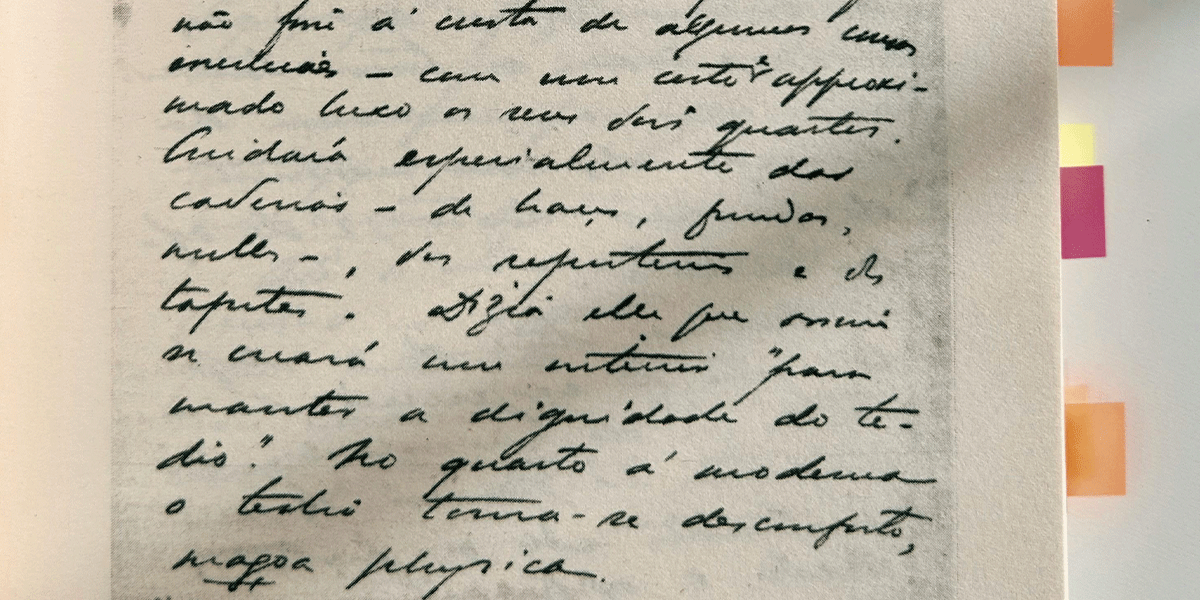 não fosse á custa de algumas cousas
essenciaes – com um certo e approxi-
mado luxo os seus dois quartos.
Cuidará especialmente das
cadeiras – de braços, fundas,
molles –, dos reposteiros e dos
tapetes. Dizia elle que assim
se creará um interior "para
manter a dignidade do te-
dio". No quarto á moderna
o tedio torna-se desconforto,
magoa physica.